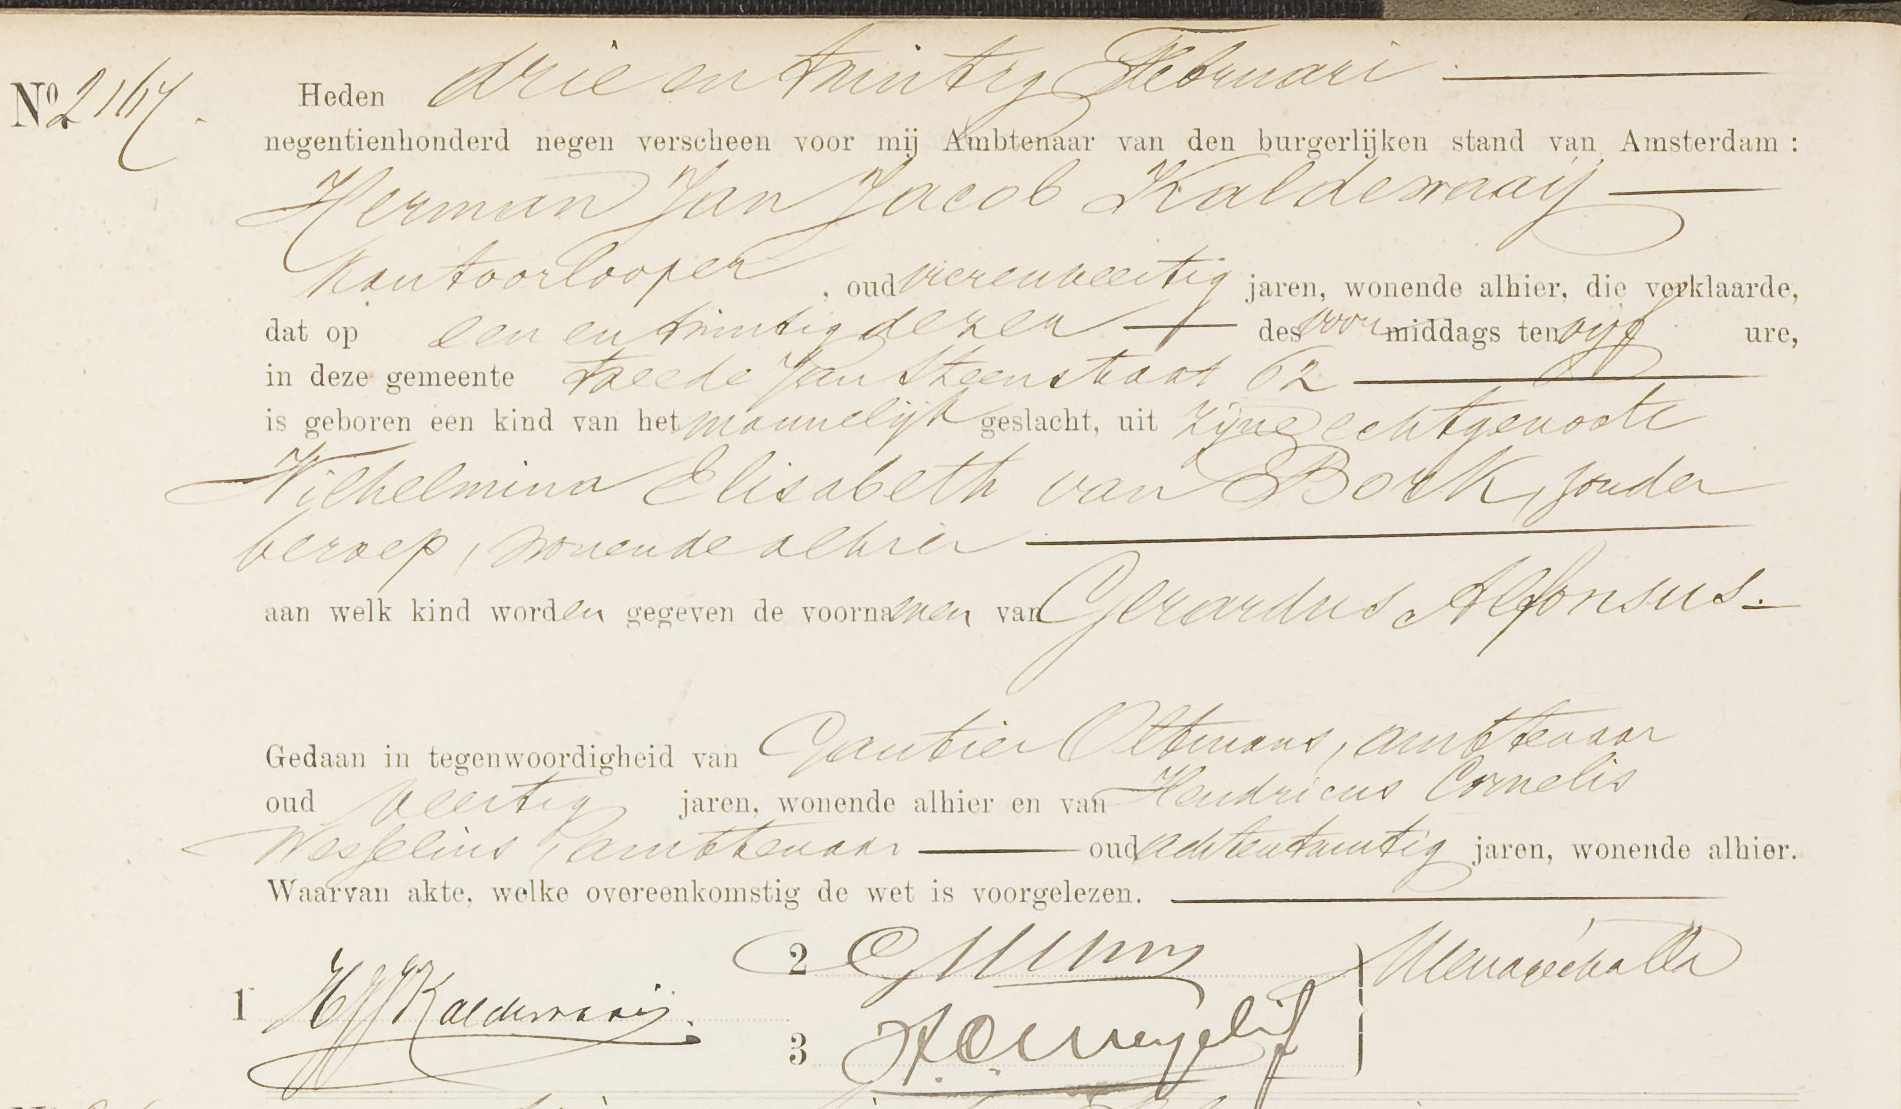 No. 2167. Heden drie en twintig Februari
negentienhonderd negen verscheen voor mij Ambtenaar van den burgerlijken stand van Amsterdam :
Herman Jan Jacob Kaldewaaij
Kantoorlooper , oud vierenveertig jaren, wonende alhier, die verklaarde,
dat op een en twintig dezer des voormiddags ten vijf ure,
in deze gemeente Tweede Jan Steenstraat 62
is geboren een kind van het mannelijk geslacht, uit zijne echtgenoote
Wilhelmina Elisabeth van Bork, zonder
beroep, wonende alhier
aan welk kind worden gegeven de voornamen van Gerardus Alfonsus.
Gedaan in tegenwoordigheid van Gautier Oltmans, ambtenaar
oud veertig jaren, wonende alhier en van Hendricus Cornelis
Wesselius, ambtenaar oud achtentwintig jaren, wonende alhier.
Waarvan akte, welke overeenkomstig de wet is voorgelezen.
1 HJJKaldewaaij.
2
3 H.C. Wesselius